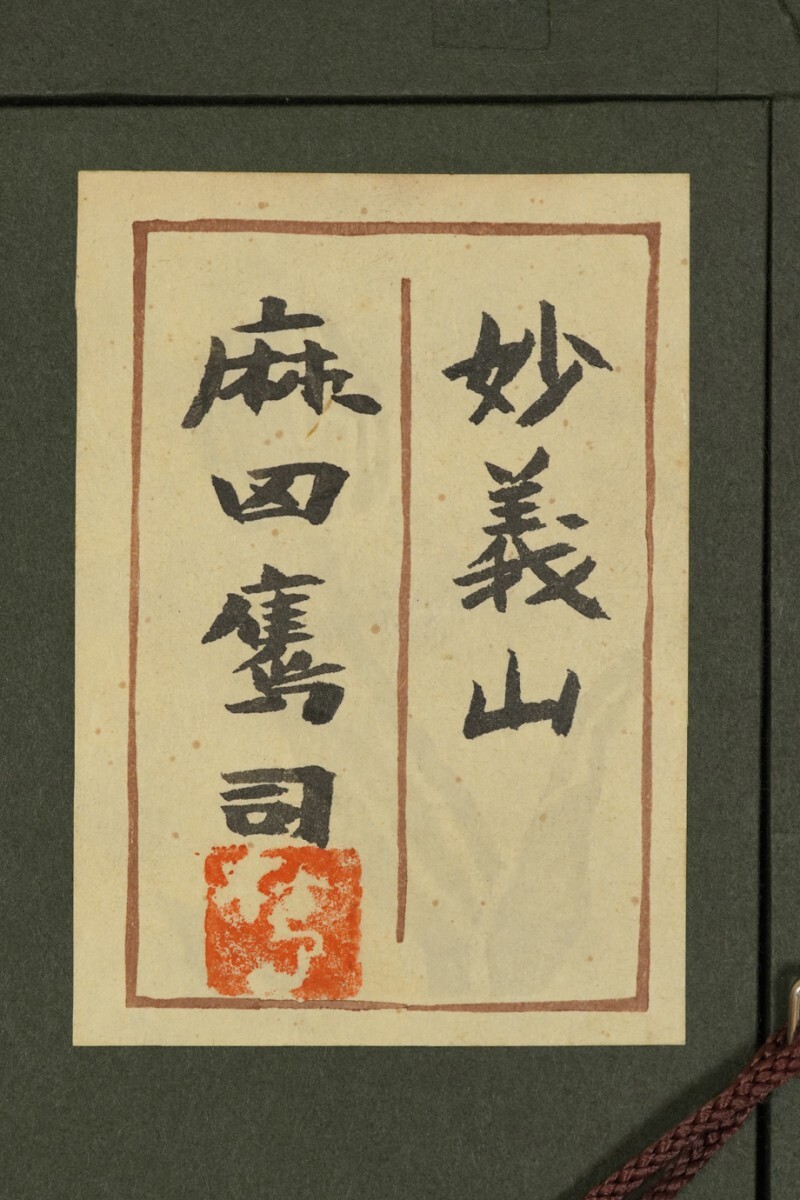 妙義山
麻田鷹司